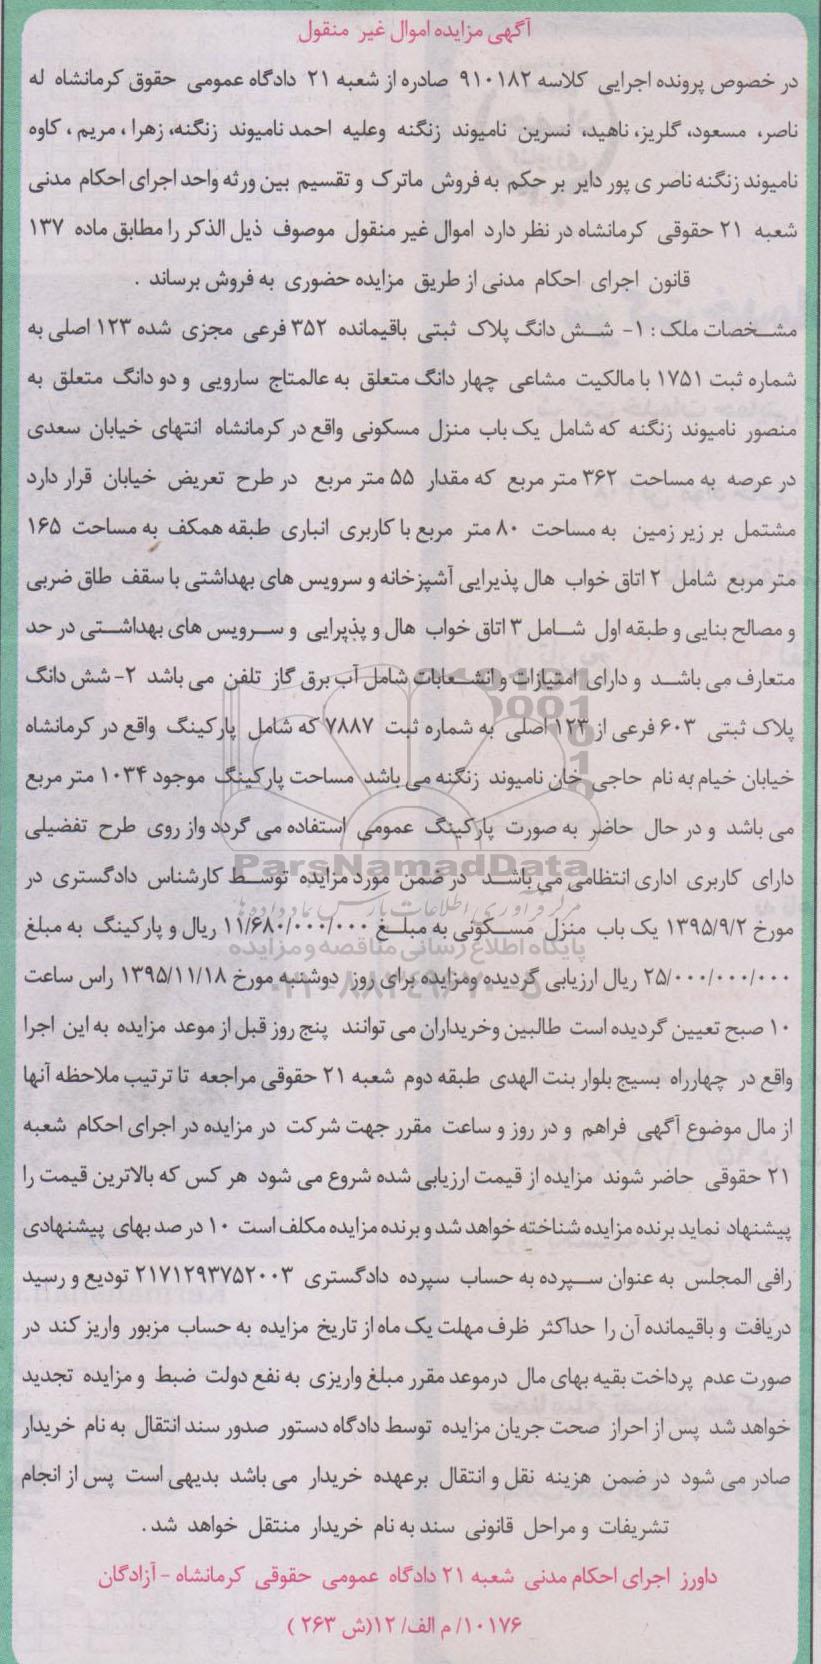 آگهی مزایده اموال غیر منقول
در خصوص پرونده اجرایی کلاسه ۹۱۰۱۸۲ صادره از شعبه ۲۱ دادگاه عمومی حقوق کرمانشاه له
ناصر، مسعود، گلریز، ناهید، نسرین نامیوند زنگنه وعلیه احمد نامیوند زنگنه، زهرا ، مریم ، کاوه
نامیوند زنگنه ناصر ی پور دایر بر حکم به فروش ماترک و تقسیم بین ورثه واحد اجرای احکام مدنی
شعبه ۲۱ حقوقی کرمانشاه در نظر دارد اموال غیر منقول موصوف ذیل الذکر را مطابق ماده ۱۳۷
قانون اجرای احکام مدنی از طریق مزایده حضوری به فروش برساند .
مشخصات ملک : ۱- شش دانگ پلاک ثبتی باقیمانده ۳۵۲ فرعی مجزی شده ۱۲۳ اصلی به
شماره ثبت ۱۷۵۱ با مالکیت مشاعی چهار دانگ متعلق به عالمتاج سارویی و دو دانگ متعلق به
منصور نامیوند زنگنه که شامل یک باب منزل مسکونی واقع در کرمانشاه انتهای خیابان سعدی
در عرصه به مساحت ۳۶۲ متر مربع که مقدار ۵۵ متر مربع در طرح تعریض خیابان قرار دارد
مشتمل بر زیر زمین به مساحت ۸۰ متر مربع با کاربری انباری طبقه همکف به مساحت ۱۶۵
متر مربع شامل ۲ اتاق خواب هال پذیرایی آشپزخانه و سرویس های بهداشتی با سقف طاق ضربی
و مصالح بنایی و طبقه اول شامل ۳ اتاق خواب هال و پذیرایی و سرویس های بهداشتی در حد
متعارف می باشد و دارای امتیازات و انشعابات شامل آب برق گاز تلفن می باشد ۲- شش دانگ
پلاک ثبتی ۶۰۳ فرعی از ۱۲۳ اصلی به شماره ثبت ۷۸۸۷ که شامل پارکینگ واقع در کرمانشاه
خیابان خیام به نام حاجی خان نامیوند زنگنه می باشد مساحت پارکینگ موجود ۱۰۳۴ متر مربع
می باشد و در حال حاضر به صورت پارکینگ عمومی استفاده می گردد واز روی طرح تفضیلی
دارای کاربری اداری انتظامی می باشد در ضمن مورد مزایده توسط کارشناس دادگستری در
مورخ ۱۳۹۵/۹/۲ یک باب منزل مسکونی به مبلغ ۱۱/۶۸۰/۰۰۰/۰۰۰ ریال و پارکینگ به مبلغ
۲۵/۰۰۰/۰۰۰/۰۰۰ ریال ارزیابی گردیده ومزایده برای روز دوشنبه مورخ ۱۳۹۵/۱۱/۱۸ راس ساعت
۱۰ صبح تعیین گردیده است طالبین وخریداران می توانند پنج روز قبل از موعد مزایده به این اجرا
واقع در چهارراه بسیج بلوار بنت الهدی طبقه دوم شعبه ۲۱ حقوقی مراجعه تا ترتیب ملاحظه آنها
از مال موضوع آگهی فراهم و در روز و ساعت مقرر جهت شرکت در مزایده در اجرای احکام شعبه
۲۱ حقوقی حاضر شوند مزایده از قیمت ارزیابی شده شروع می شود هر کس که بالاترین قیمت را
پیشنهاد نماید برنده مزایده شناخته خواهد شد و برنده مزایده مکلف است ۱۰ در صد بهای پیشنهادی
رافی المجلس به عنوان سپرده به حساب سپرده دادگستری ۲۱۷۱۲۹۳۷۵۲۰۰۳ تودیع و رسید
دریافت و باقیمانده آن را حداکثر ظرف مهلت یک ماه از تاریخ مزایده به حساب مزبور واریز کند در
صورت عدم پرداخت بقیه بهای مال درموعد مقرر مبلغ واریزی به نفع دولت ضبط و مزایده تجدید
خواهد شد پس از احراز صحت جریان مزایده توسط دادگاه دستور صدور سند انتقال به نام خریدار
صادر می شود در ضمن هزینه نقل و انتقال برعهده خریدار می باشد بدیهی است پس از انجام
تشریفات و مراحل قانونی سند به نام خریدار منتقل خواهد شد .
داورز اجرای احکام مدنی شعبه ۲۱ دادگاه عمومی حقوقی کرمانشاه - آزادگان
۱۰۱۷۶/ م الف/ ۱۲(ش ۲۶۳ )
ParsNamadData
مرکز فرآوری اطلاعات پارس نماد داده ها
پایگاه اطلاع رسانی مناقصه و مزایده